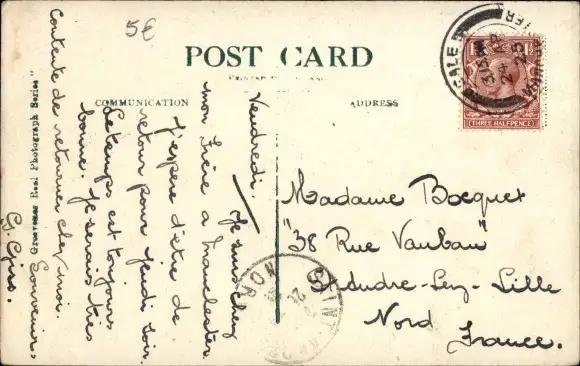 5€
POST CARD
COMMUNICATION
ADDRESS
"Grosvenor Real Photograph Series"
SALE
24 AP
23
THREE HALFPENCE
Vendredi.
Je suis chez
mon frère a Manchester
J'espère d'être de
retour pour jeudi soir.
Le temps est toujours
bonne. Je serais très
contente de retourner chez moi.
Souvenirs
G.
Madame Bocquet
"38 Rue Vauban"
St Andre-Lez-Lille
Nord
France.
SAINT
NORD